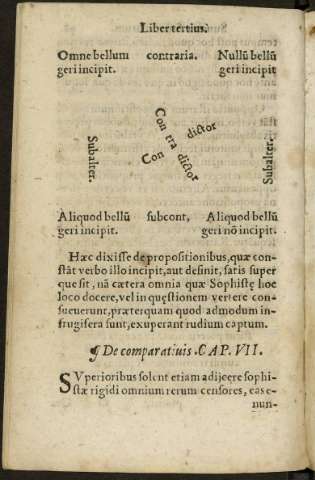 Liber tertius.
Omne bellum contraria. Nullũ bellũ
geri incipit. geri incipit
Con tra dictor
Con tra dictor
Subalter. Subalter.
Aliquod bellũ subcont. Aliquod bellũ
geri incipit. geri nõ incipit.
Hæc dixisse de propositionibus, quæ con-
stãt verbo illo incipit, aut desinit, satis super
que sit, nã cætera omnia quæ Sophistę hoc
loco docere, vel in quęstionem vertere con-
sueuerunt, præterquam quod admodum in-
frugifera sunt, exuperant rudium captum.
¶ De comparatiuis . CAP. VII.
SVperioribus solent etiam adijcere sophi-
stæ rigidi omnium rerum censores, eas e-
nun-